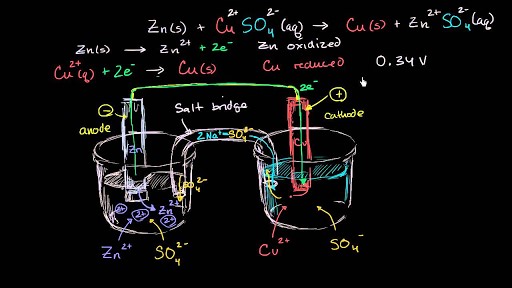 Zn(s) + Cu²⁺SO₄²⁻(aq) → Cu(s) + Zn²⁺SO₄²⁻(aq)
Zn(s) → Zn²⁺ + 2e⁻ Zn oxidized
Cu²⁺(q) + 2e⁻ → Cu(s) Cu reduced 0.34 V
2e⁻
− +
Salt bridge
anode cathode
Zn Cu
2Na⁺ SO₄²⁻
SO₄²⁻
Zn²⁺
2+ 2+ 2+
Zn²⁺ SO₄²⁻ Cu²⁺ SO₄²⁻